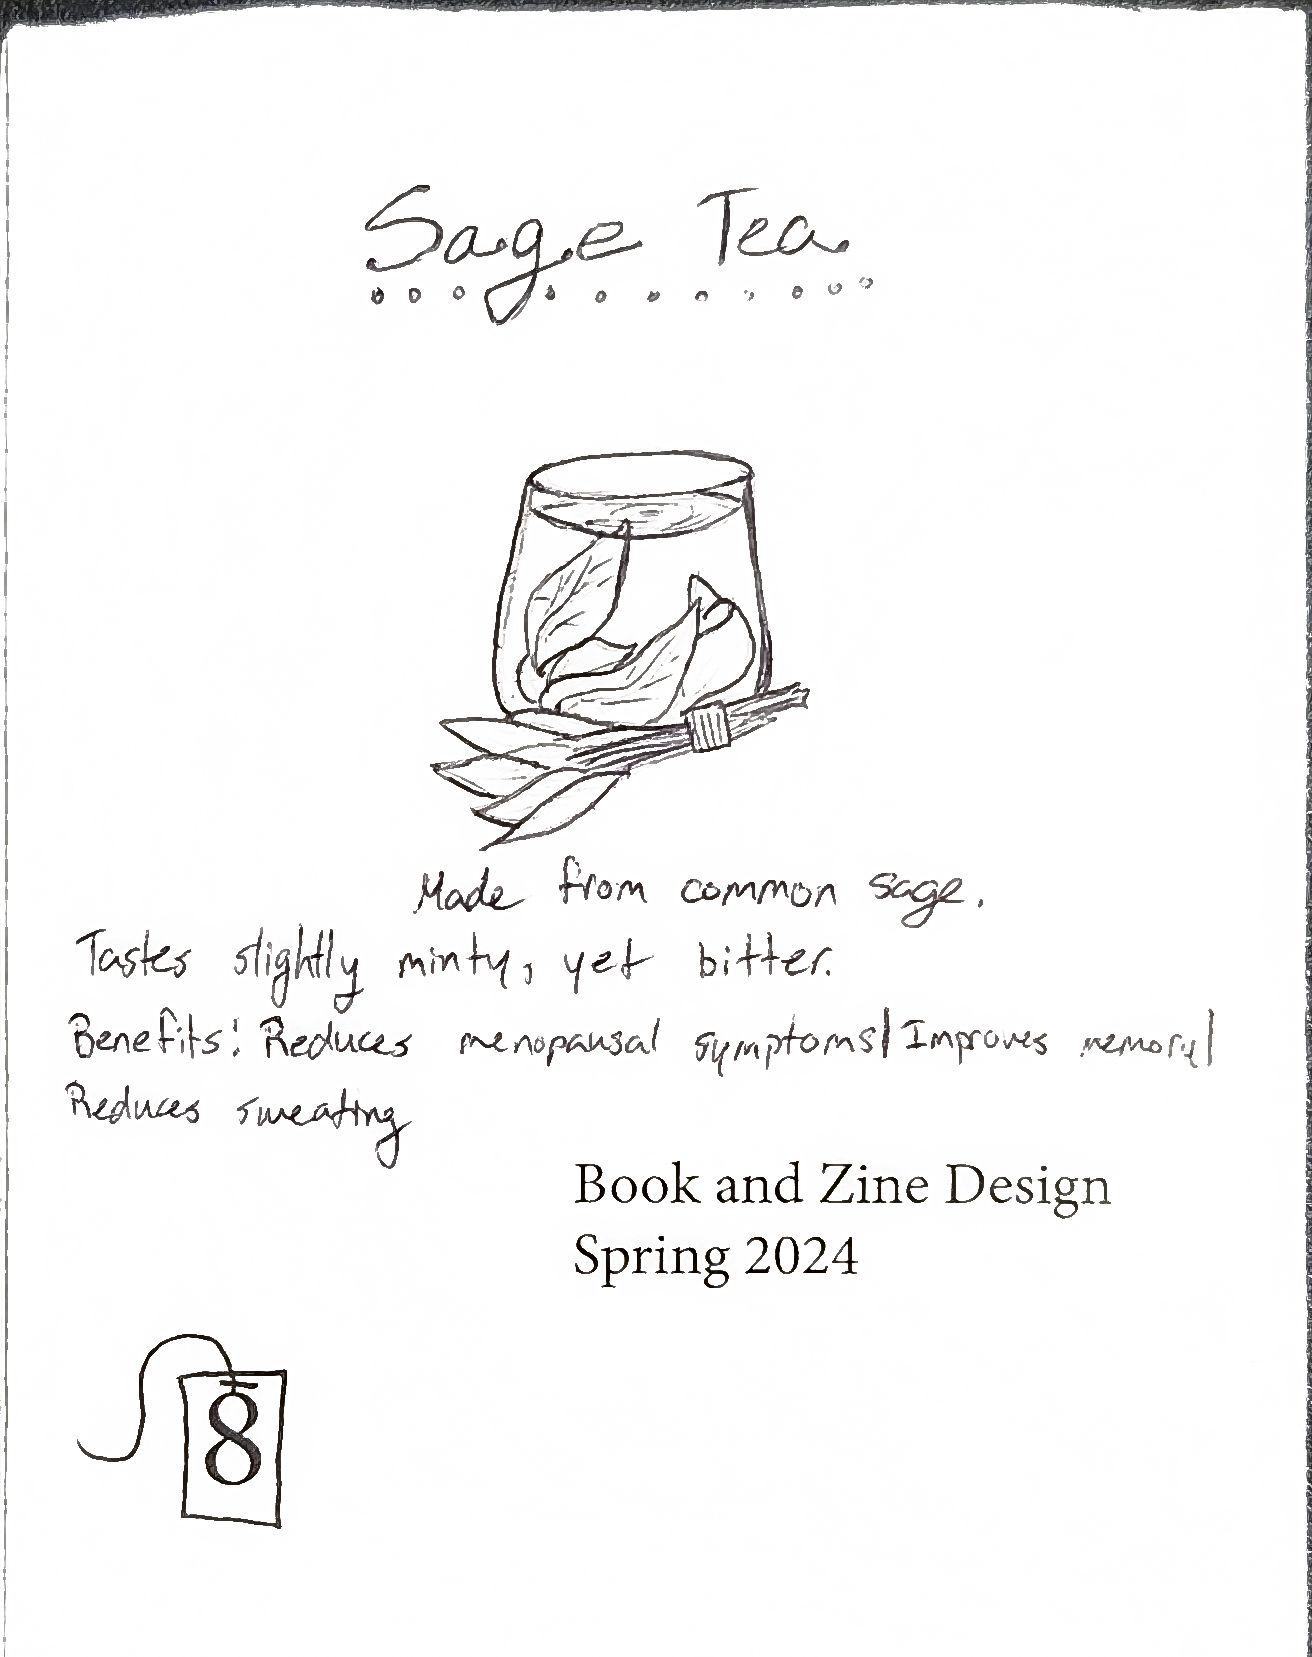 Sage Tea
Made from common sage.
Tastes slightly minty, yet bitter.
Benefits: Reduces menopausal symptoms| Improves memory|
Reduces sweating
Book and Zine Design
Spring 2024
8